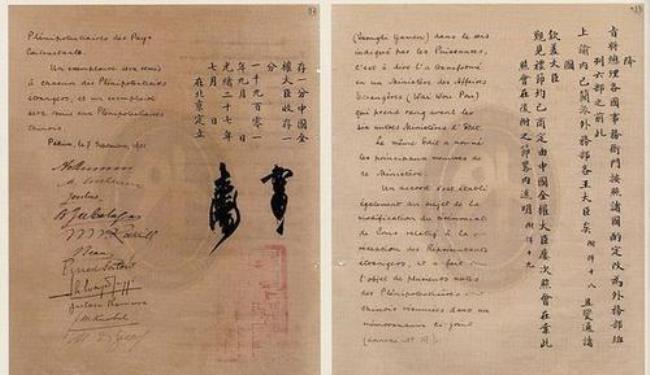 Plénipotentiaires des Pays
Contractants.
Un exemplaire sera remis
à chacun des Plénipotentiaires
étrangers, et un exemplaire
sera remis aux Plénipotentiaires
chinois.
Pékin, le 7 Septembre, 1901
存一分中國全
權大臣收存一
分
一千九百零一
年九月 日
光緒二十七年
七月 日
在北京定立
(Tsongli Yamen) dans le sens
indiqué par les Puissances,
c'est à dire l'a transformé
en un Ministère des Affaires
Etrangères (Wai Wou Pou)
qui prend rang avant les
six autres Ministères d'Etat.
Le même Edit a nommé
les principaux membres de
ce Ministère.
Un accord s'est établi
également au sujet de la
modification du cérémonial
de Cour relatif à la
réception des Représentants
étrangers, et a fait
l'objet de plusieurs notes
des Plénipotentiaires
chinois résumées dans un
mémorandum ci-joint
降
旨將總理各國事務衙門按照諸國酌定改為外務部班
列六部之前此
上諭內已簡派外務部各王大臣矣 附件十八 且變通諸
國
欽差大臣
覲見禮節均已商定由中國全權大臣屢次照會在案此
照會在後附之節畧內述明 附件十九